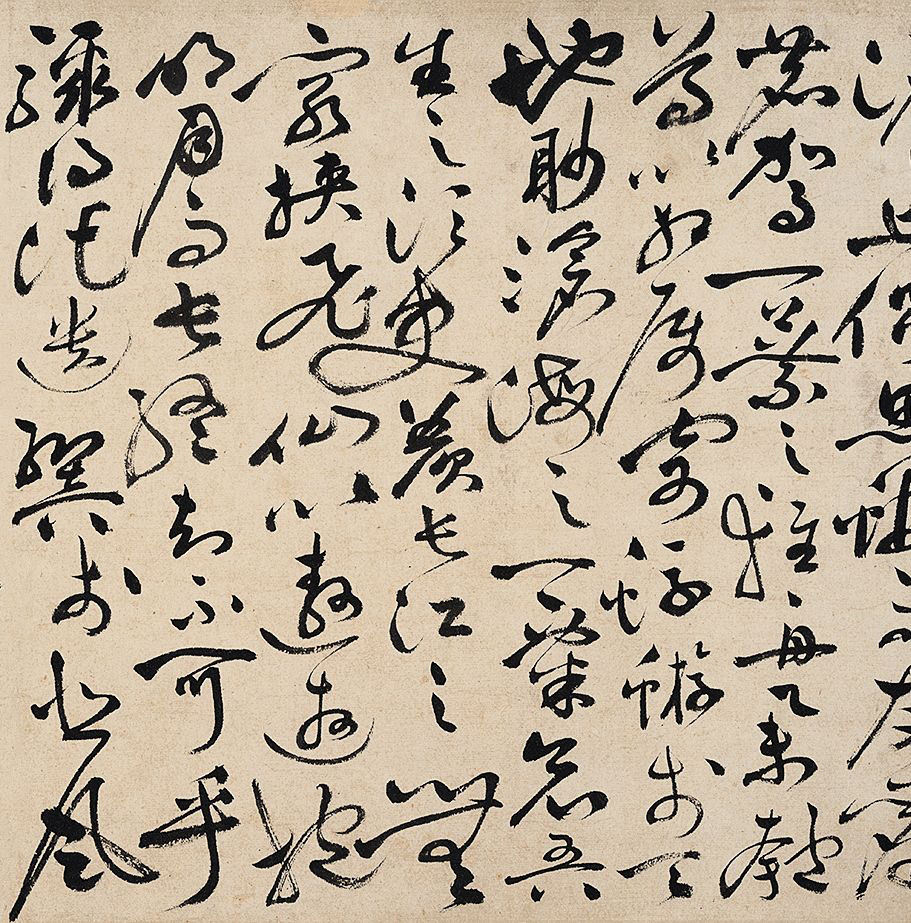 上侶魚蝦而友麋
鹿駕一葉之扁舟舉匏
尊以相屬寄蜉蝣於天
地眇滄海之一粟哀吾
生之須臾羨長江之無
窮挾飛仙以遨遊抱
明月而長終知不可乎
驟得託遺響於悲風